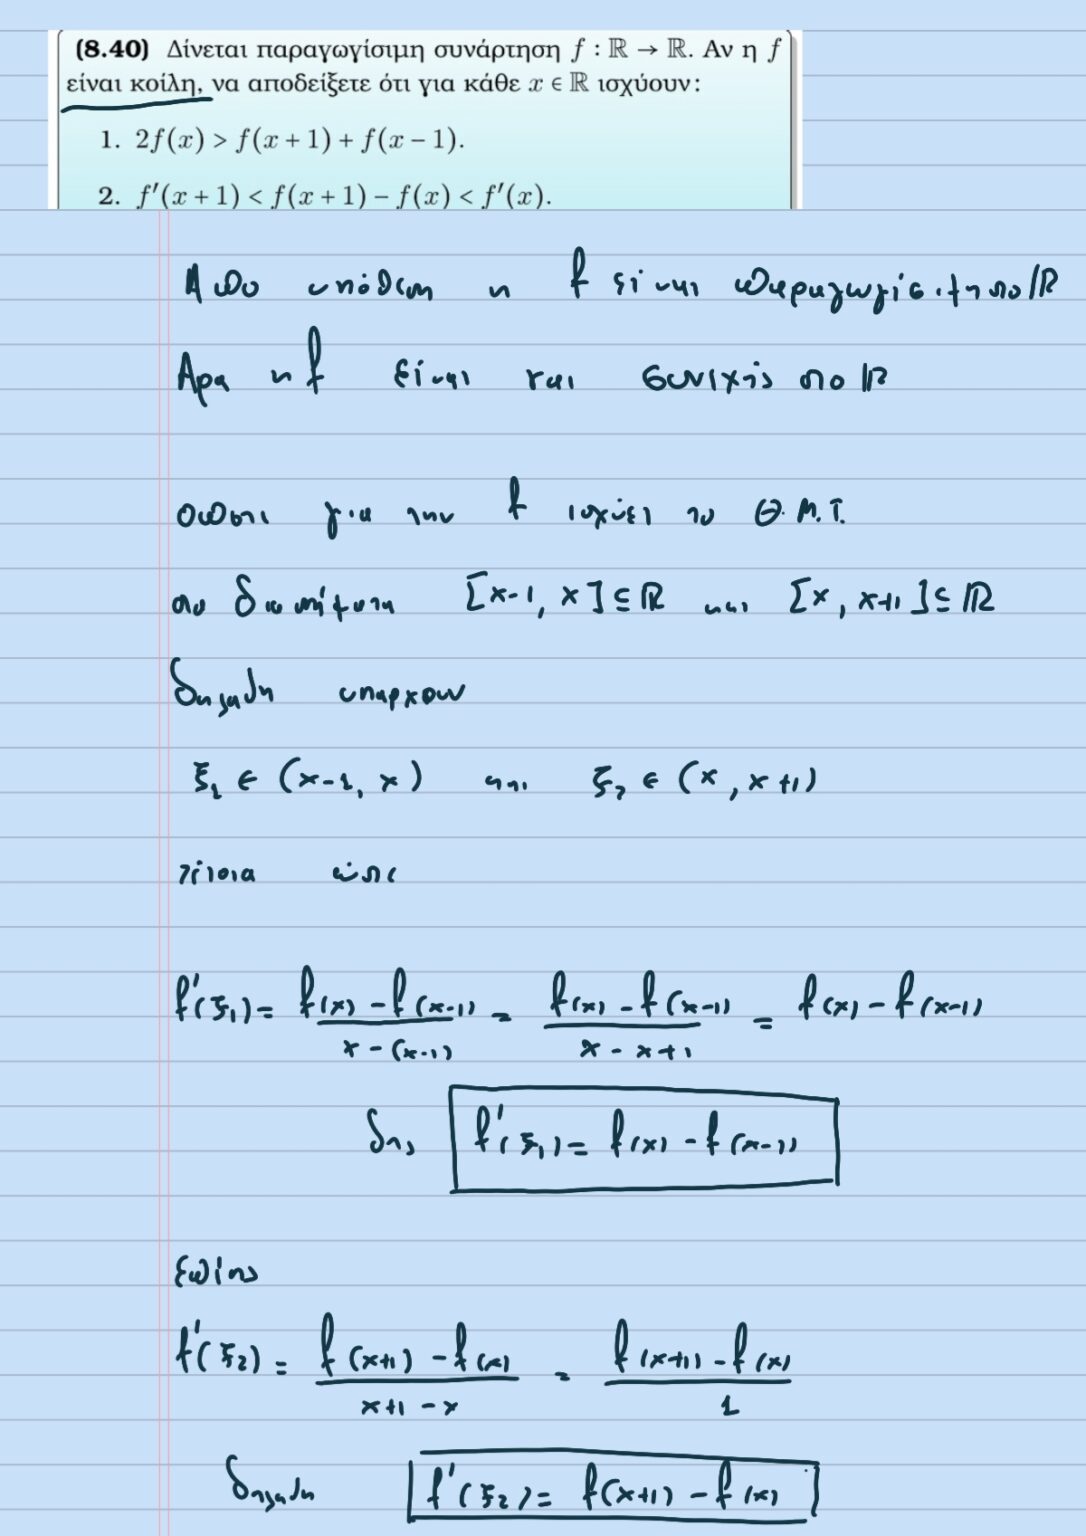 (8.40) Δίνεται παραγωγίσιμη συνάρτηση f : ℝ → ℝ. Αν η f
είναι κοίλη, να αποδείξετε ότι για κάθε x ∈ ℝ ισχύουν:
1. 2f(x) > f(x + 1) + f(x − 1).
2. f′(x + 1) < f(x + 1) − f(x) < f′(x).
Απο υπόθεση η f είναι παραγωγίσιμη στο ℝ
Αρα η f είναι και συνεχής στο ℝ
οποτε για την f ισχύει το Θ.Μ.Τ.
στα διαστήματα [x-1, x] ⊆ ℝ και [x, x+1] ⊆ ℝ
δηλαδη υπαρχουν
ξ₁ ∈ (x-1, x) και ξ₂ ∈ (x, x+1)
τέτοια ώστε
f'(ξ₁) = f(x) - f(x-1) / x - (x-1) = f(x) - f(x-1) / x - x + 1 = f(x) - f(x-1)
δηλ f'(ξ₁) = f(x) - f(x-1)
επίσης
f'(ξ₂) = f(x+1) - f(x) / x+1 - x = f(x+1) - f(x) / 1
δηλαδη f'(ξ₂) = f(x+1) - f(x)